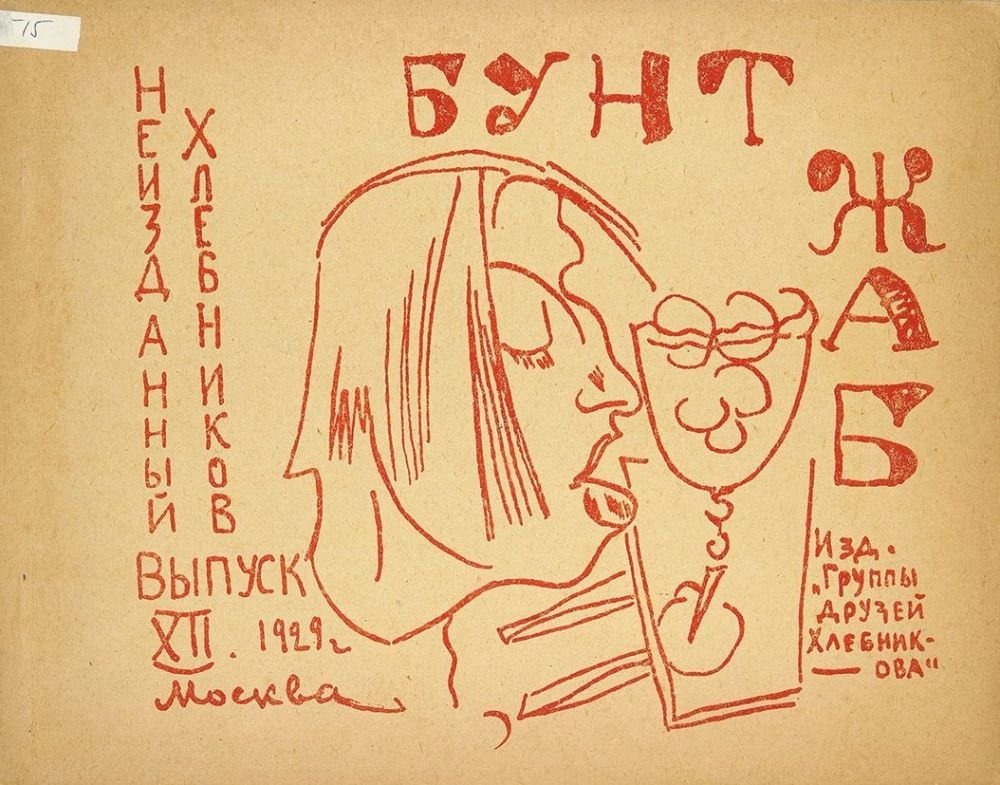 75
БУНТ
ЖАБ
НЕИЗДАННЫЙ
ХЛЕБНИКОВ
ВЫПУСК
XII. 1929 г.
Москва
Изд.
„Группы
друзей
Хлебник-
ова“